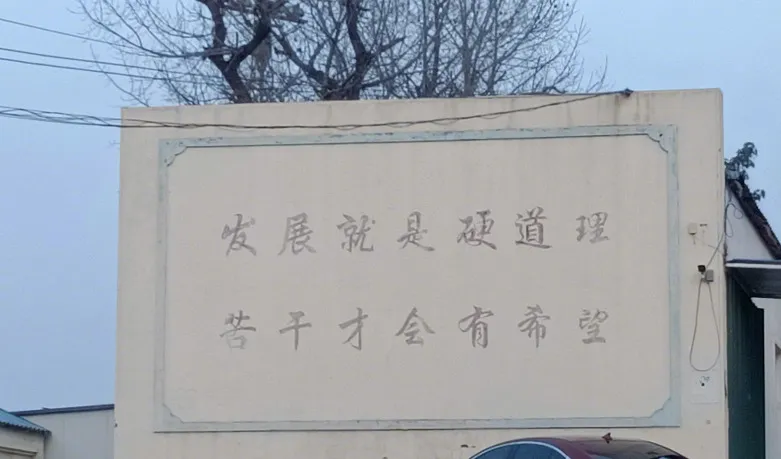 发展就是硬道理
苦干才会有希望